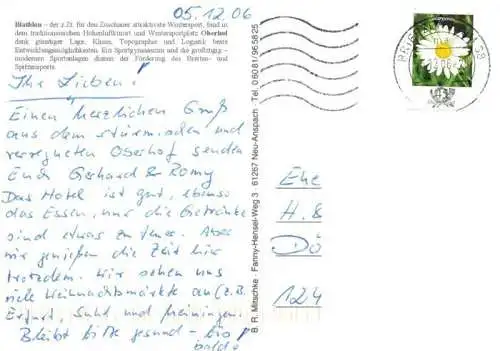 05.12.06
Biathlon – der z.Zt. für den Zuschauer attraktivste Wintersport, fand in
dem traditionsreichen Höhenluftkurort und Wintersportplatz Oberhof
dank günstiger Lage, Klima, Topographie und Logistik beste
Entwicklungsmöglichkeiten. Ein Sportgymnasium und die großzügig -
modernen Sportanlagen dienen der Förderung des Breiten- und
Spitzensports.
Ihr Lieben!
Einen herzlichen Gruß
aus dem stürmischen und
verregneten Oberhof senden
Euch Gerhard & Romy
Das Hotel ist gut, ebenso
das Essen, nur die Getränke
sind etwas zu teuer. Aber
wir genießen die Zeit hier
trotzdem. Wir sehen uns
viele Weihnachtsmärkte an (z.B.
Erfurt, Suhl und Meiningen.
Bleibt bitte gesund – bis
bald!
B. R. Mitschke · Fanny-Hensel-Weg 3 · 61267 Neu-Anspach · Tel. 06081/965825
Ehe
H. &
Dö
124